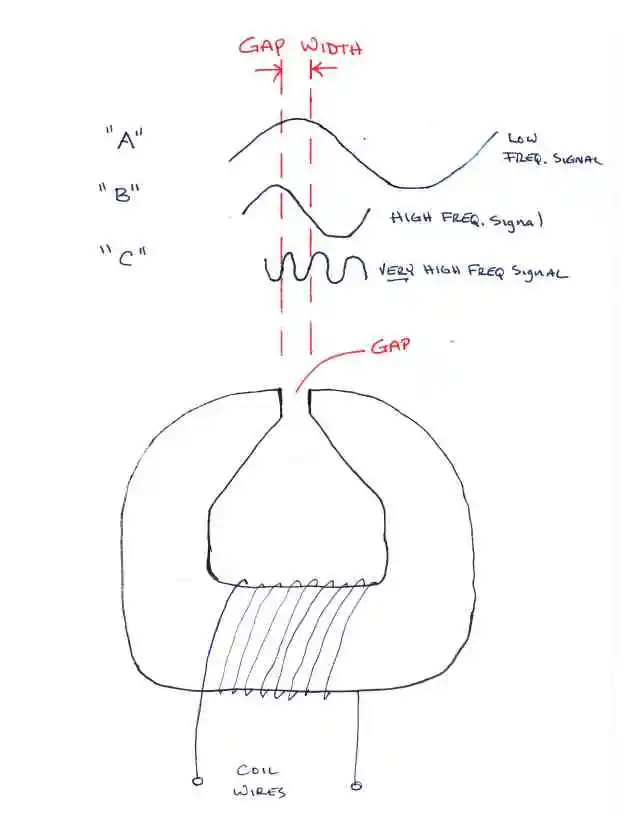 GAP WIDTH
"A"
LOW
FREQ. SIGNAL
"B"
HIGH FREQ. Signal
"C"
VERY HIGH FREQ SIgNAL
GAP
COIL
WIRES